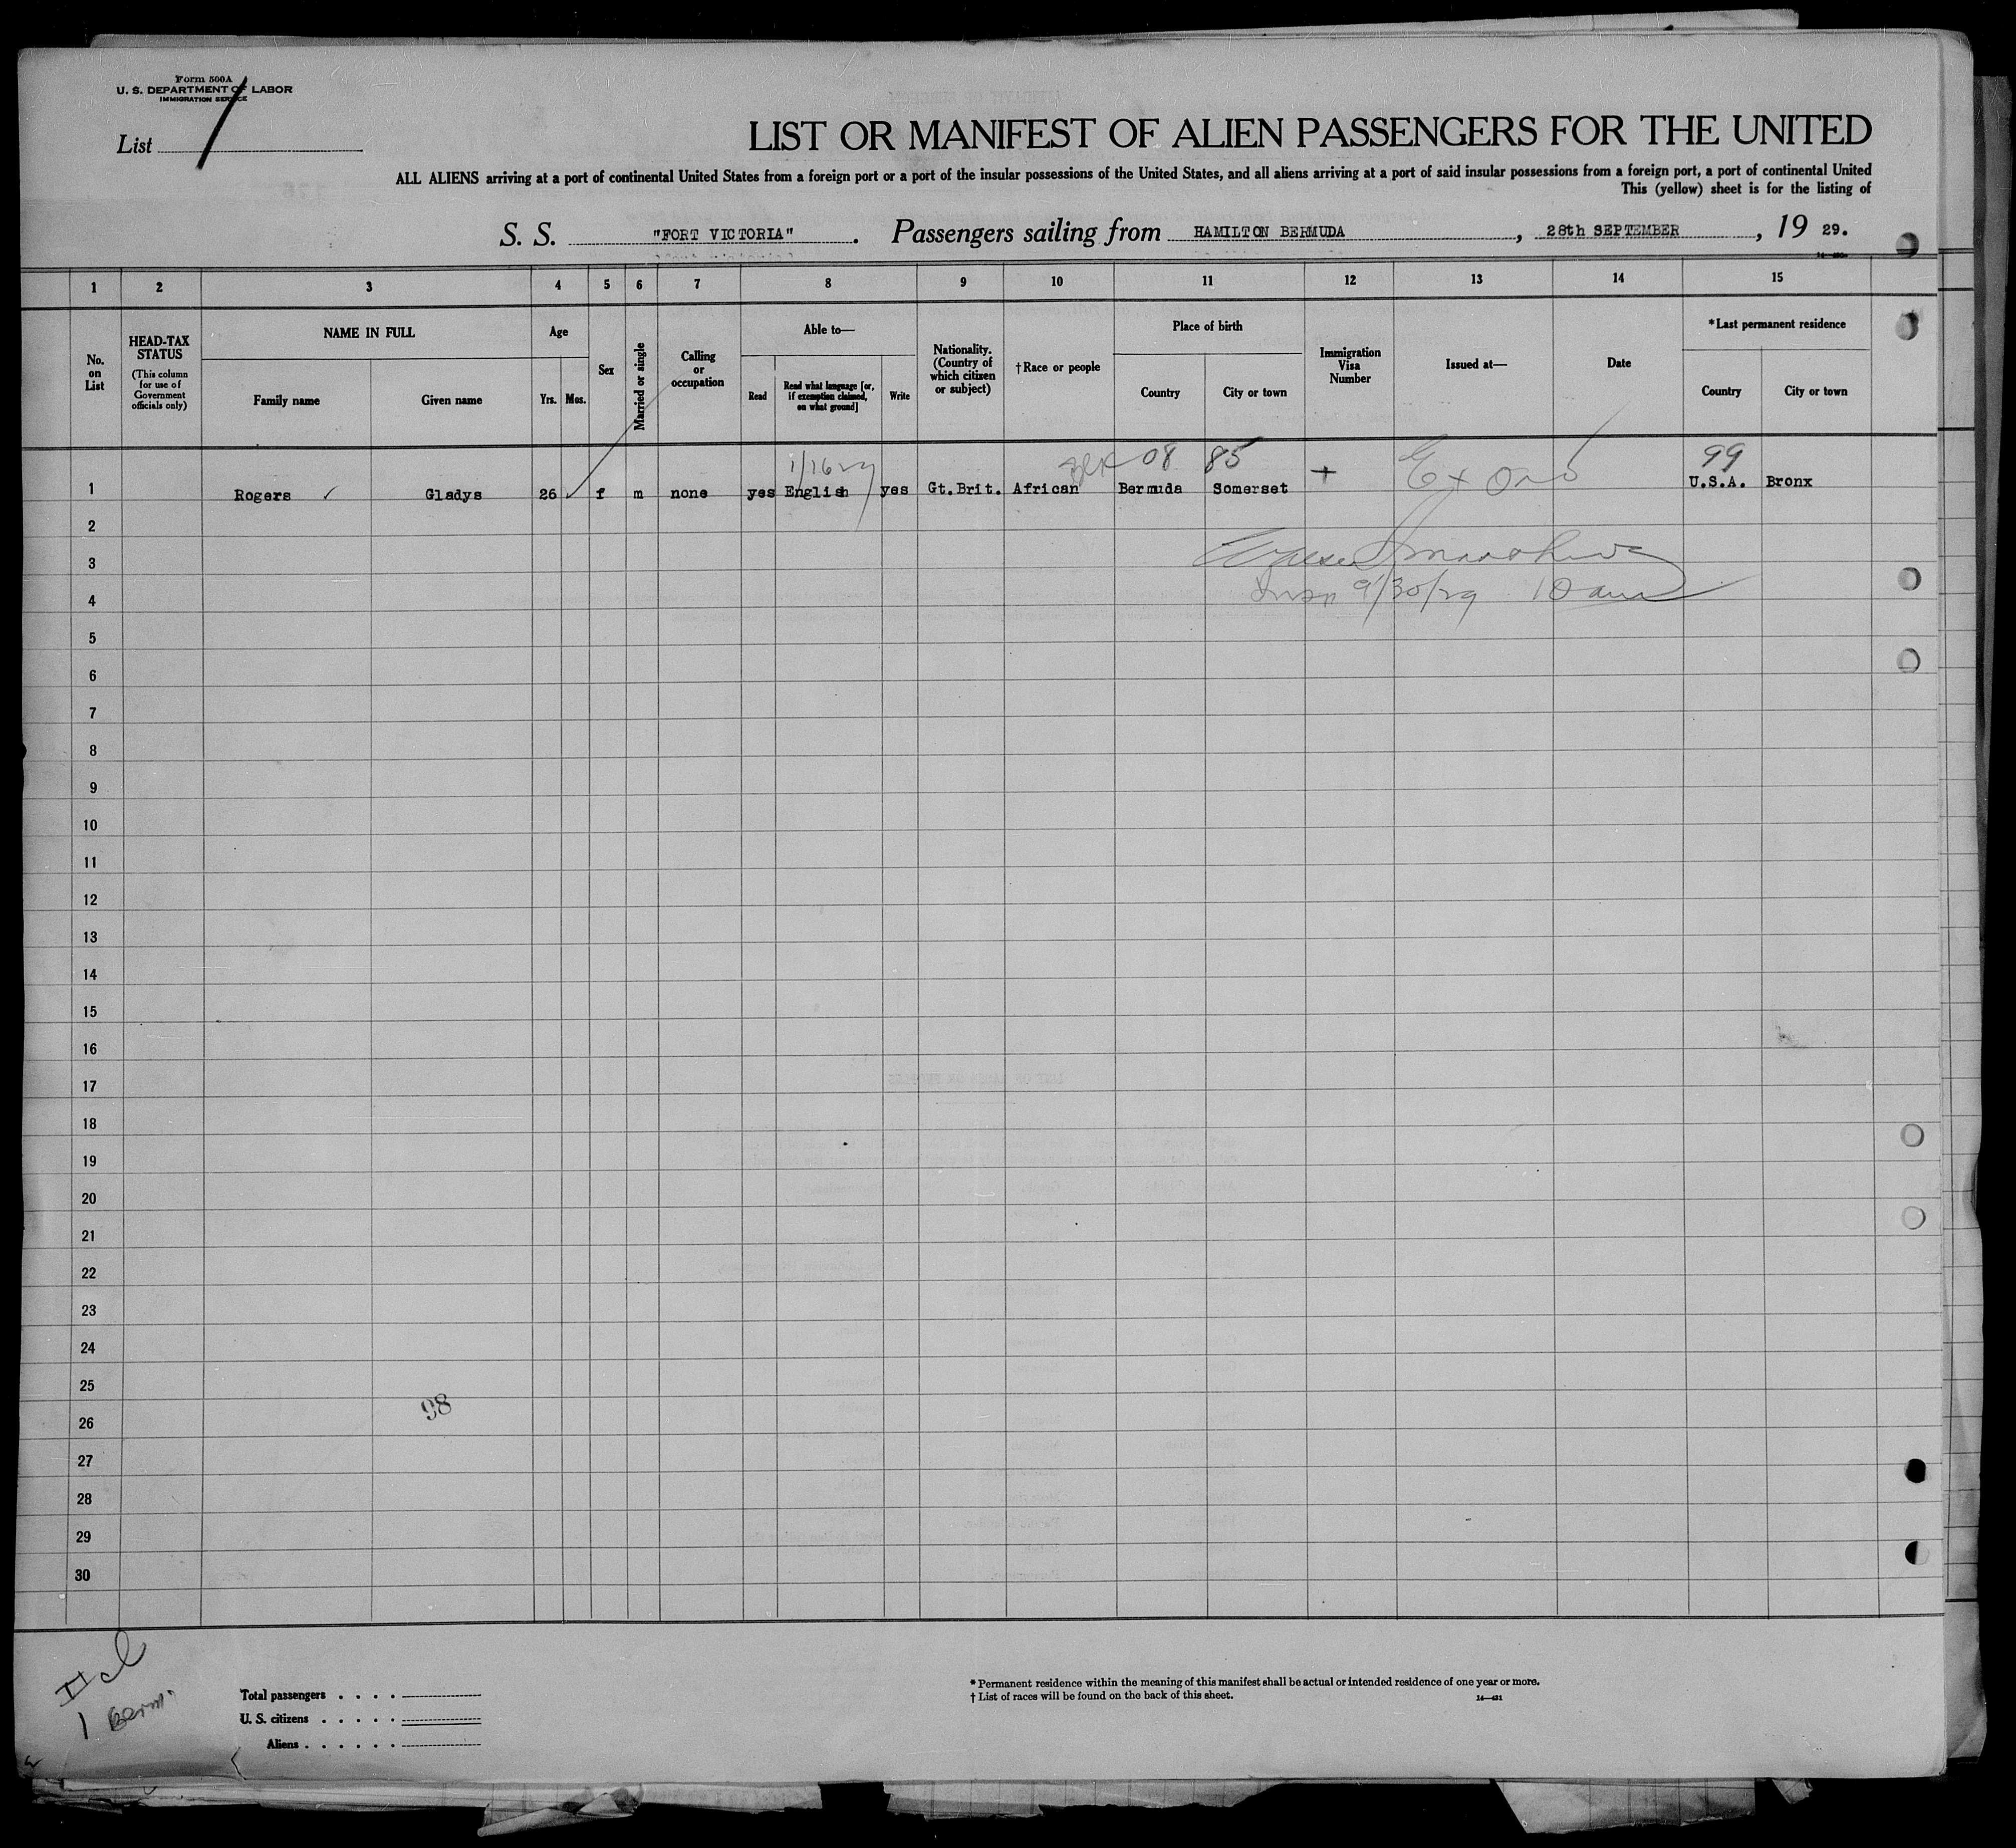 Form 500A
U. S. DEPARTMENT OF LABOR
IMMIGRATION SERVICE
List 1
LIST OR MANIFEST OF ALIEN PASSENGERS FOR THE UNITED
ALL ALIENS arriving at a port of continental United States from a foreign port or a port of the insular possessions of the United States, and all aliens arriving at a port of said insular possessions from a foreign port, a port of continental United
This (yellow) sheet is for the listing of
S. S. "FORT VICTORIA". Passengers sailing from HAMILTON BERMUDA, 28th SEPTEMBER, 19 29.
1 2 3 4 5 6 7 8 9 10 11 12 13 14 15
No. on List
HEAD-TAX STATUS (This column for use of Government officials only)
NAME IN FULL
Family name
Given name
Age
Yrs. Mos.
Sex
Married or single
Calling or occupation
Able to—
Read
Read what language [or, if exemption claimed, on what ground]
Write
Nationality. (Country of which citizen or subject)
†Race or people
Place of birth
Country
City or town
Immigration Visa Number
Issued at—
Date
*Last permanent residence
Country
City or town
1/16 29 08 85 99
1 Rogers ✓ Gladys 26 ✓ f m none yes English yes Gt.Brit. African Bermuda Somerset + U.S.A. Bronx
2
3
4 9/30/29 10 am
5
6
7
8
9
10
11
12
13
14
15
16
17
18
19
20
21
22
23
24
25
98
26
27
28
29
30
1 Berm.
Total passengers . . . .
U. S. citizens . . . . .
Aliens . . . . . .
* Permanent residence within the meaning of this manifest shall be actual or intended residence of one year or more.
† List of races will be found on the back of this sheet.
14—431